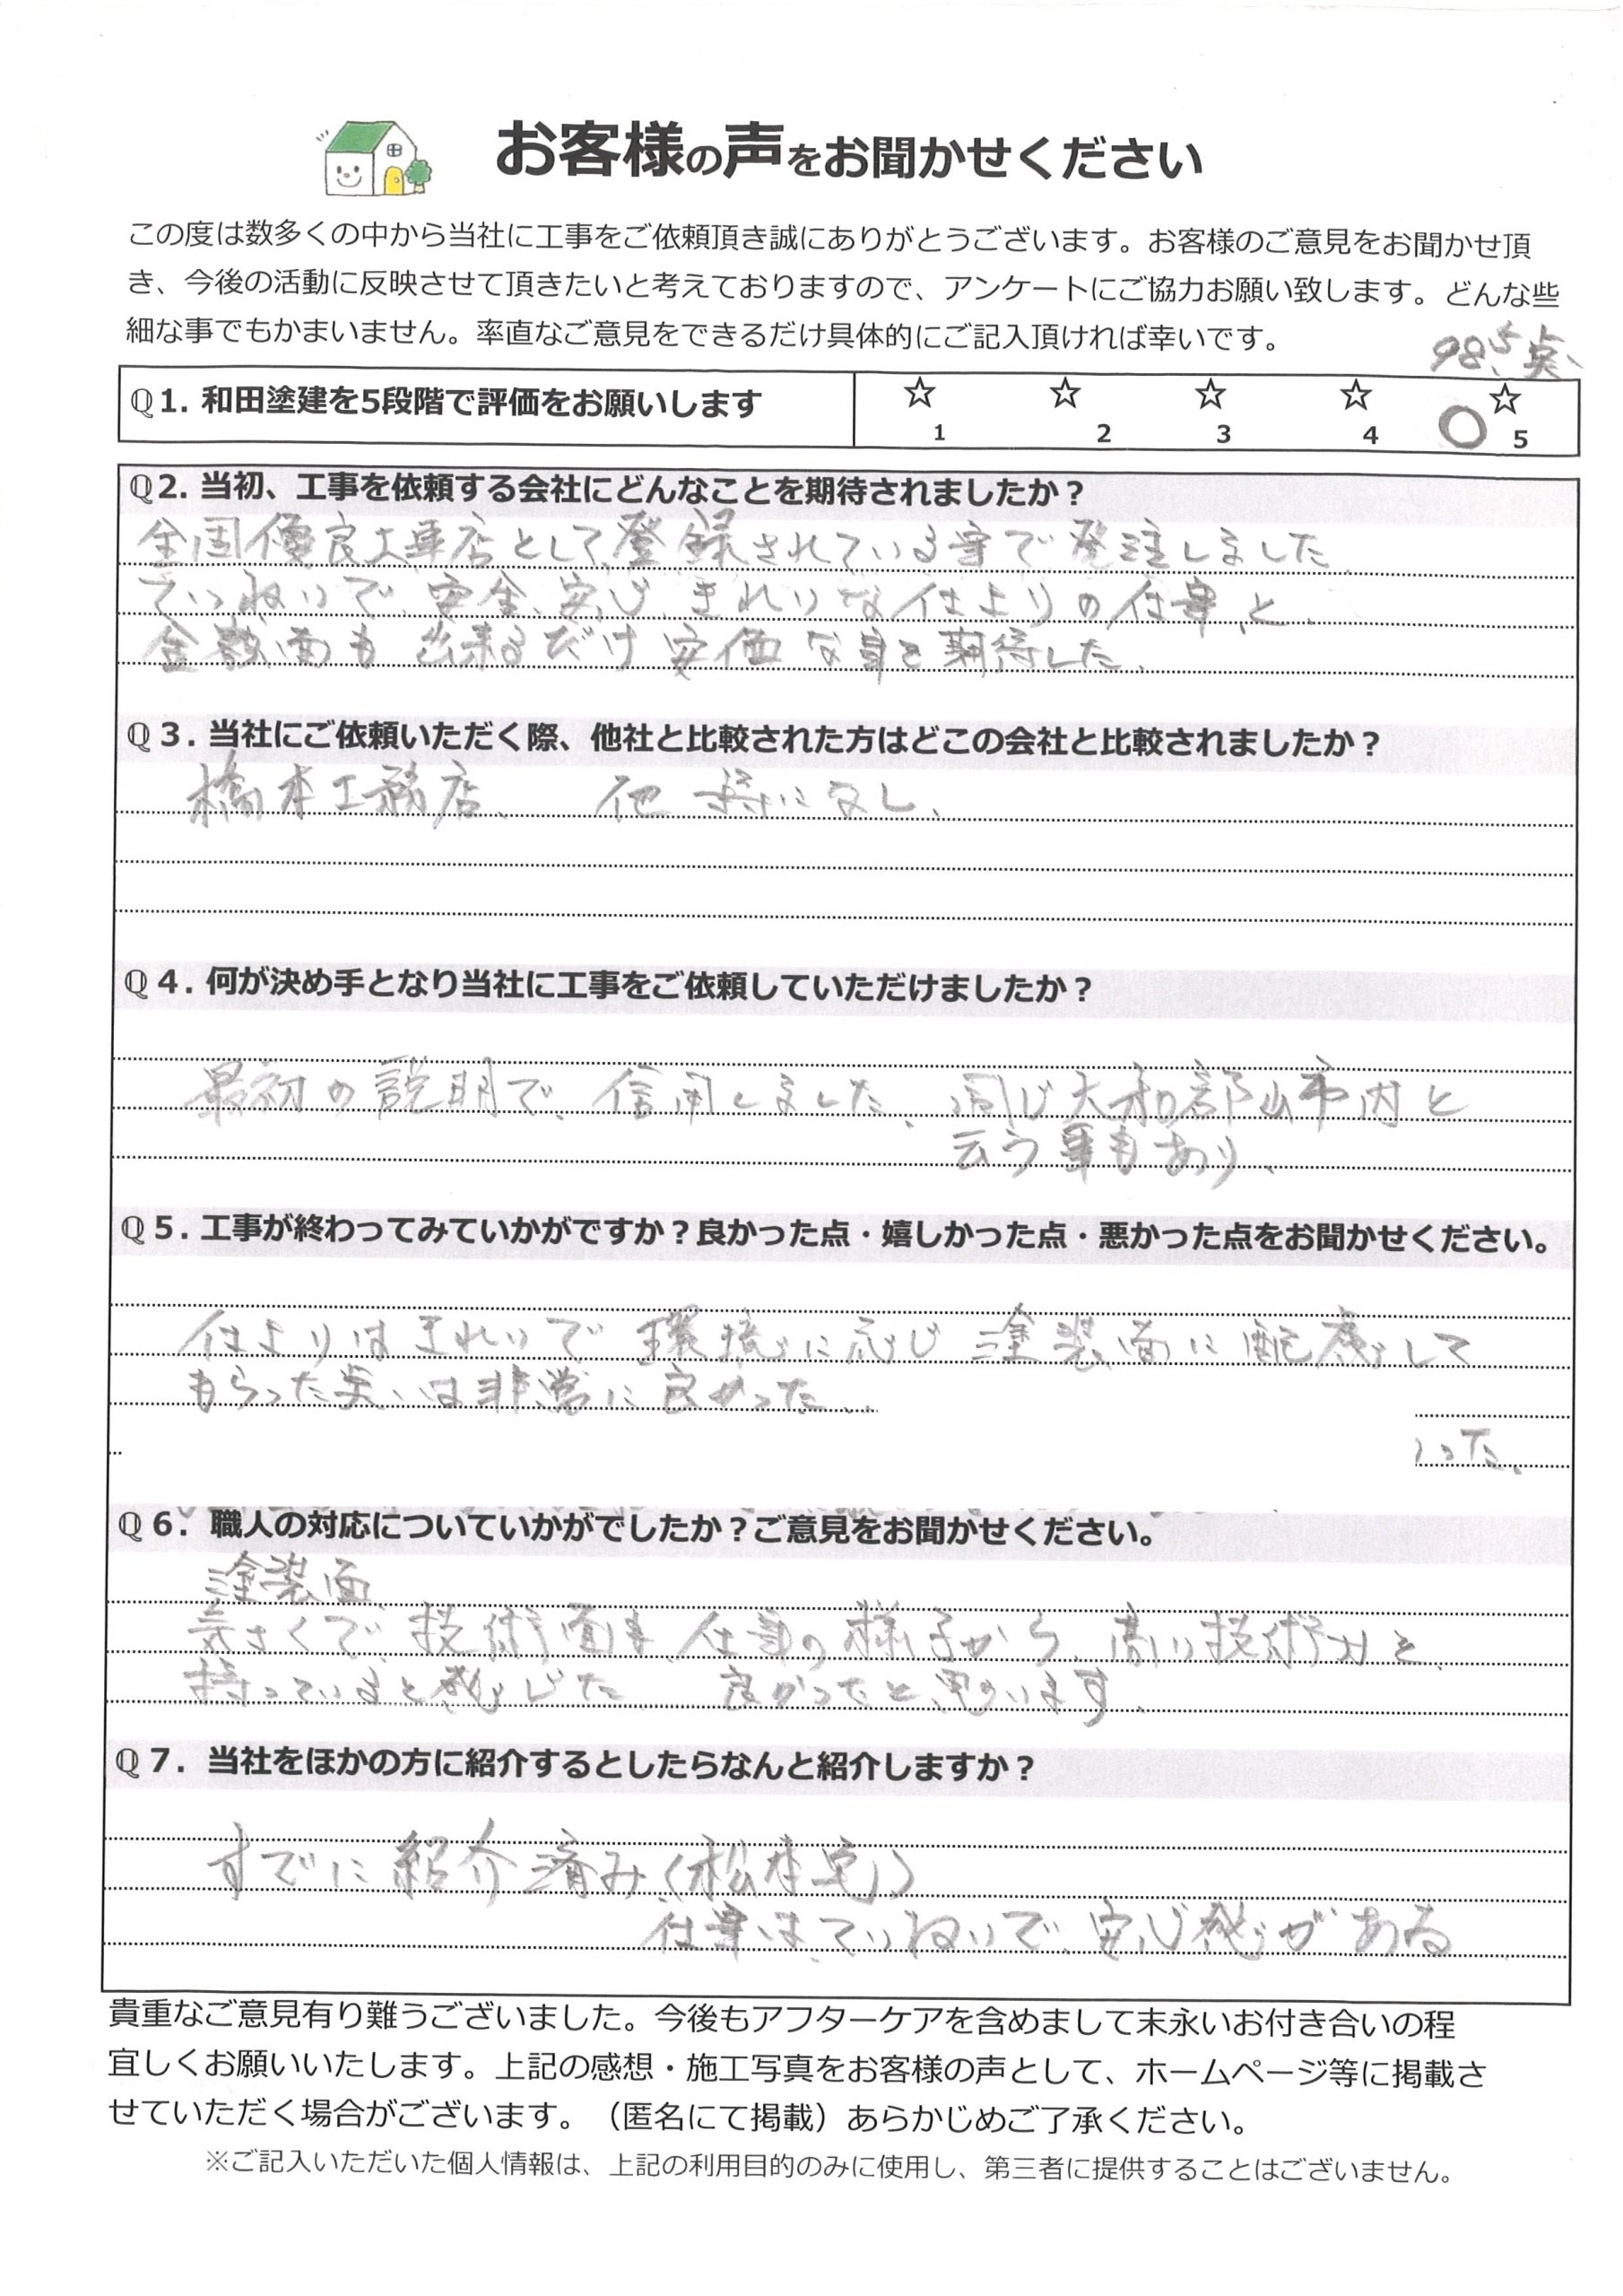 お客様の声をお聞かせください
この度は数多くの中から当社に工事をご依頼頂き誠にありがとうございます。お客様のご意見をお聞かせ頂
き、今後の活動に反映させて頂きたいと考えておりますので、アンケートにご協力お願い致します。どんな些
細な事でもかまいません。率直なご意見をできるだけ具体的にご記入頂ければ幸いです。
98.5点
Q1. 和田塗建を5段階で評価をお願いします ☆ ☆ ☆ ☆ ☆
1 2 3 4 ○ 5
Q2. 当初、工事を依頼する会社にどんなことを期待されましたか？
全国優良工事店として登録されている事で発注しました
ていねいで、安全、安心 きれいな仕上りの仕事と、
金額面も 出来るだけ 安価な事を期待した、
Q３. 当社にご依頼いただく際、他社と比較された方はどこの会社と比較されましたか？
橋本工務店、 他 特になし、
Q４. 何が決め手となり当社に工事をご依頼していただけましたか？
最初の説明で、信用しました、同じ大和郡山市内と
云う事もあり、
Q５. 工事が終わってみていかがですか？良かった点・嬉しかった点・悪かった点をお聞かせください。
仕上りはきれいで 環境に応じ 塗装面に配慮して
もらった点は非常に良かった、
った、
Q６. 職人の対応についていかがでしたか？ご意見をお聞かせください。
塗装面
気さくで、技術面も仕事の様子から、高い技術力を、
持っていると感じた 良かったと思います、
Q７. 当社をほかの方に紹介するとしたらなんと紹介しますか？
すでに紹介済み（松本宅）
仕事は、ていねいで、安心感がある
貴重なご意見有り難うございました。今後もアフターケアを含めまして末永いお付き合いの程
宜しくお願いいたします。上記の感想・施工写真をお客様の声として、ホームページ等に掲載さ
せていただく場合がございます。（匿名にて掲載）あらかじめご了承ください。
※ご記入いただいた個人情報は、上記の利用目的のみに使用し、第三者に提供することはございません。